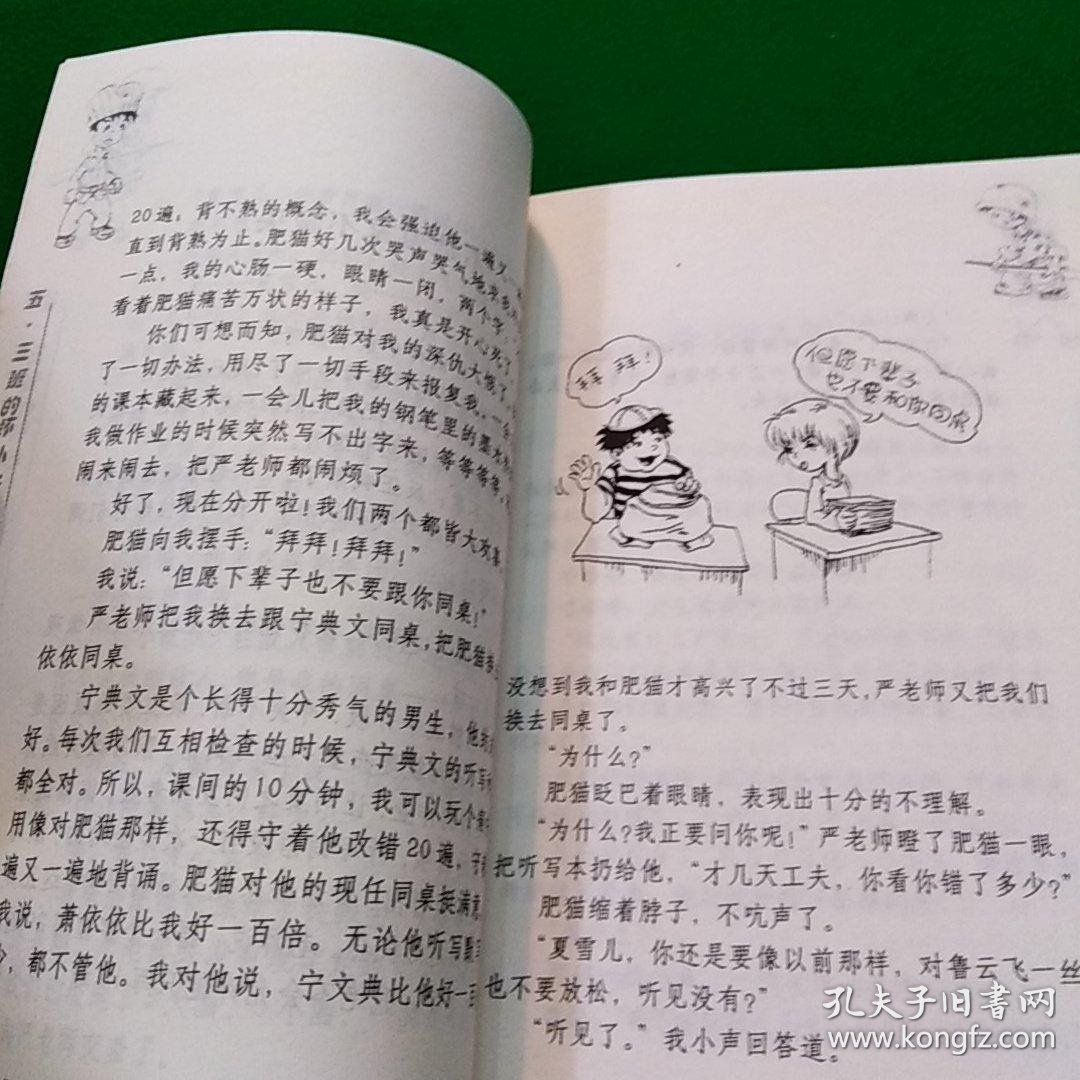 五·三班的坏小
20遍；背不熟的概念，我会强迫他一遍又一
直到背熟为止。肥猫好几次哭声哭气地求我
一点，我的心肠一硬，眼睛一闭，两个字：
看着肥猫痛苦万状的样子，我真是开心死了
你们可想而知，肥猫对我的深仇大恨了
了一切办法，用尽了一切手段来报复我。一会
的课本藏起来，一会儿把我的钢笔里的墨水
我做作业的时候突然写不出字来，等等等等。
闹来闹去，把严老师都闹烦了。
好了，现在分开啦！我们两个都皆大欢喜。
肥猫向我摆手：“拜拜！拜拜！”
我说：“但愿下辈子也不要跟你同桌！”
严老师把我换去跟宁典文同桌，把肥猫
依依同桌。
宁典文是个长得十分秀气的男生，他
好。每次我们互相检查的时候，宁典文的听写
都全对。所以，课间的10分钟，我可以玩个
用像对肥猫那样，还得守着他改错20遍，守
遍又一遍地背诵。肥猫对他的现任同桌挺满意
我说，萧依依比我好一百倍。无论他听写
少，都不管他。我对他说，宁文典比他好一百
拜拜！
但愿下辈子
也不要和你同桌
没想到我和肥猫才高兴了不过三天，严老师又把我们
换去同桌了。
“为什么？”
肥猫眨巴着眼睛，表现出十分的不理解。
“为什么？我正要问你呢！”严老师瞪了肥猫一眼，
把听写本扔给他，“才几天工夫，你看你错了多少？”
肥猫缩着脖子，不吭声了。
“夏雪儿，你还是要像以前那样，对鲁云飞一丝
也不要放松，听见没有？”
“听见了。”我小声回答道。
孔夫子旧书网
www.kongfz.com